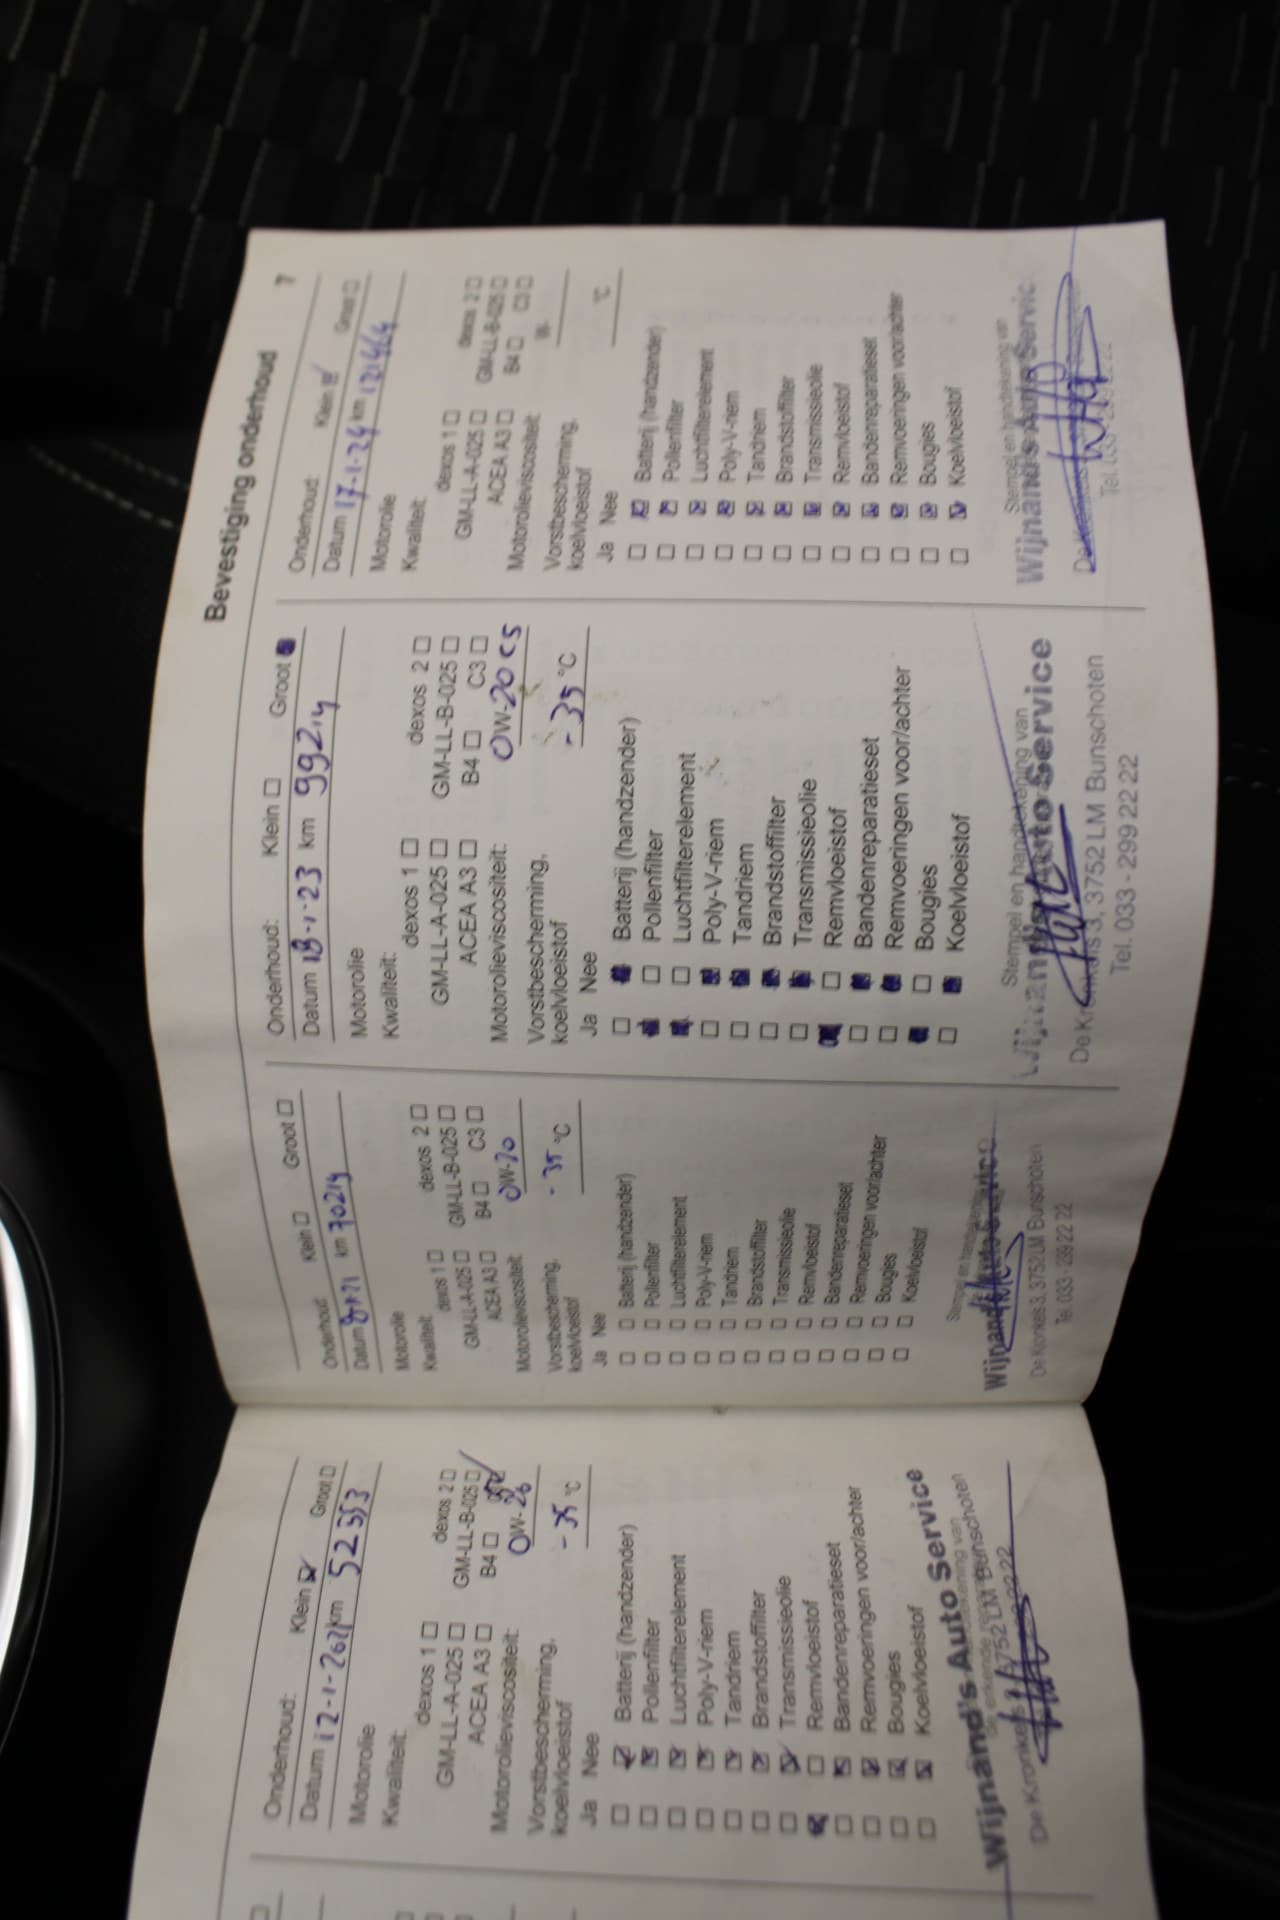 Bevestiging onderhoud 7
Onderhoud: Klein ☑ Groot ☐
Datum 12-1-2021 km 52553
Motorolie
Kwaliteit:
dexos 1 ☐ dexos 2 ☐
GM-LL-A-025 ☐ GM-LL-B-025 ☐
ACEA A3 ☐ B4 ☐
Motorolieviscositeit: 0W-20
Vorstbescherming,
koelvloeistof -35 °C
Ja Nee
☐ ☑ Batterij (handzender)
☐ ☑ Pollenfilter
☐ ☑ Luchtfilterelement
☐ ☑ Poly-V-riem
☐ ☑ Tandriem
☐ ☑ Brandstoffilter
☐ ☑ Transmissieolie
☑ ☐ Remvloeistof
☐ ☑ Bandenreparatieset
☐ ☑ Remvoeringen voor/achter
☐ ☑ Bougies
☐ ☑ Koelvloeistof
Wijnand's Auto Service
De Kronkels 3, 3752 LM Bunschoten
Onderhoud: Klein ☐ Groot ☐
Datum km 70214
Motorolie
Kwaliteit:
dexos 1 ☐ dexos 2 ☐
GM-LL-A-025 ☐ GM-LL-B-025 ☐
ACEA A3 ☐ B4 ☐ C3 ☐
Motorolieviscositeit: 0W-20
Vorstbescherming,
koelvloeistof -35 °C
Ja Nee
☐ ☐ Batterij (handzender)
☐ ☐ Pollenfilter
☐ ☐ Luchtfilterelement
☐ ☐ Poly-V-riem
☐ ☐ Tandriem
☐ ☐ Brandstoffilter
☐ ☐ Transmissieolie
☐ ☐ Remvloeistof
☐ ☐ Bandenreparatieset
☐ ☐ Remvoeringen voor/achter
☐ ☐ Bougies
☐ ☐ Koelvloeistof
Wijnand's Auto Service
De Kronkels 3, 3752 LM Bunschoten
Tel. 033 - 299 22 22
Onderhoud: Klein ☐ Groot ☑
Datum 18-1-23 km 99214
Motorolie
Kwaliteit:
dexos 1 ☐ dexos 2 ☐
GM-LL-A-025 ☐ GM-LL-B-025 ☐
ACEA A3 ☐ B4 ☐ C3 ☐
Motorolieviscositeit: 0W-20 C5
Vorstbescherming,
koelvloeistof -35 °C
Ja Nee
☐ ☑ Batterij (handzender)
☑ ☐ Pollenfilter
☑ ☐ Luchtfilterelement
☐ ☑ Poly-V-riem
☐ ☑ Tandriem
☐ ☑ Brandstoffilter
☐ ☑ Transmissieolie
☑ ☐ Remvloeistof
☐ ☑ Bandenreparatieset
☐ ☑ Remvoeringen voor/achter
☑ ☐ Bougies
☐ ☑ Koelvloeistof
Stempel en handtekening van
Wijnand's Auto Service
De Kronkels 3, 3752 LM Bunschoten
Tel. 033 - 299 22 22
Onderhoud: Klein ☑ Groot ☐
Datum 17-1-24 km 121464
Motorolie
Kwaliteit:
dexos 1 ☐ dexos 2 ☐
GM-LL-A-025 ☐ GM-LL-B-025 ☐
ACEA A3 ☐ B4 ☐ C3 ☐
Motorolieviscositeit: W-
Vorstbescherming,
koelvloeistof °C
Ja Nee
☐ ☑ Batterij (handzender)
☐ ☑ Pollenfilter
☐ ☑ Luchtfilterelement
☐ ☑ Poly-V-riem
☐ ☑ Tandriem
☐ ☑ Brandstoffilter
☐ ☑ Transmissieolie
☐ ☑ Remvloeistof
☐ ☑ Bandenreparatieset
☐ ☑ Remvoeringen voor/achter
☐ ☑ Bougies
☐ ☑ Koelvloeistof
Stempel en handtekening van
Wijnand's Auto Servic
Tel. 033 - 299 22 22